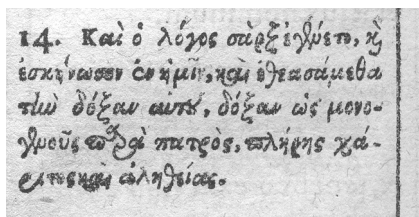 14. Καὶ ὁ λόγος σὰρξ ἐγένετο, καὶ
ἐσκήνωσεν ἐν ἡμῖν, καὶ ἐθεασάμεθα
τὴν δόξαν αὐτοῦ, δόξαν ὡς μονο-
γενοῦς παρὰ πατρὸς, πλήρης χά-
ριτος καὶ ἀληθείας.